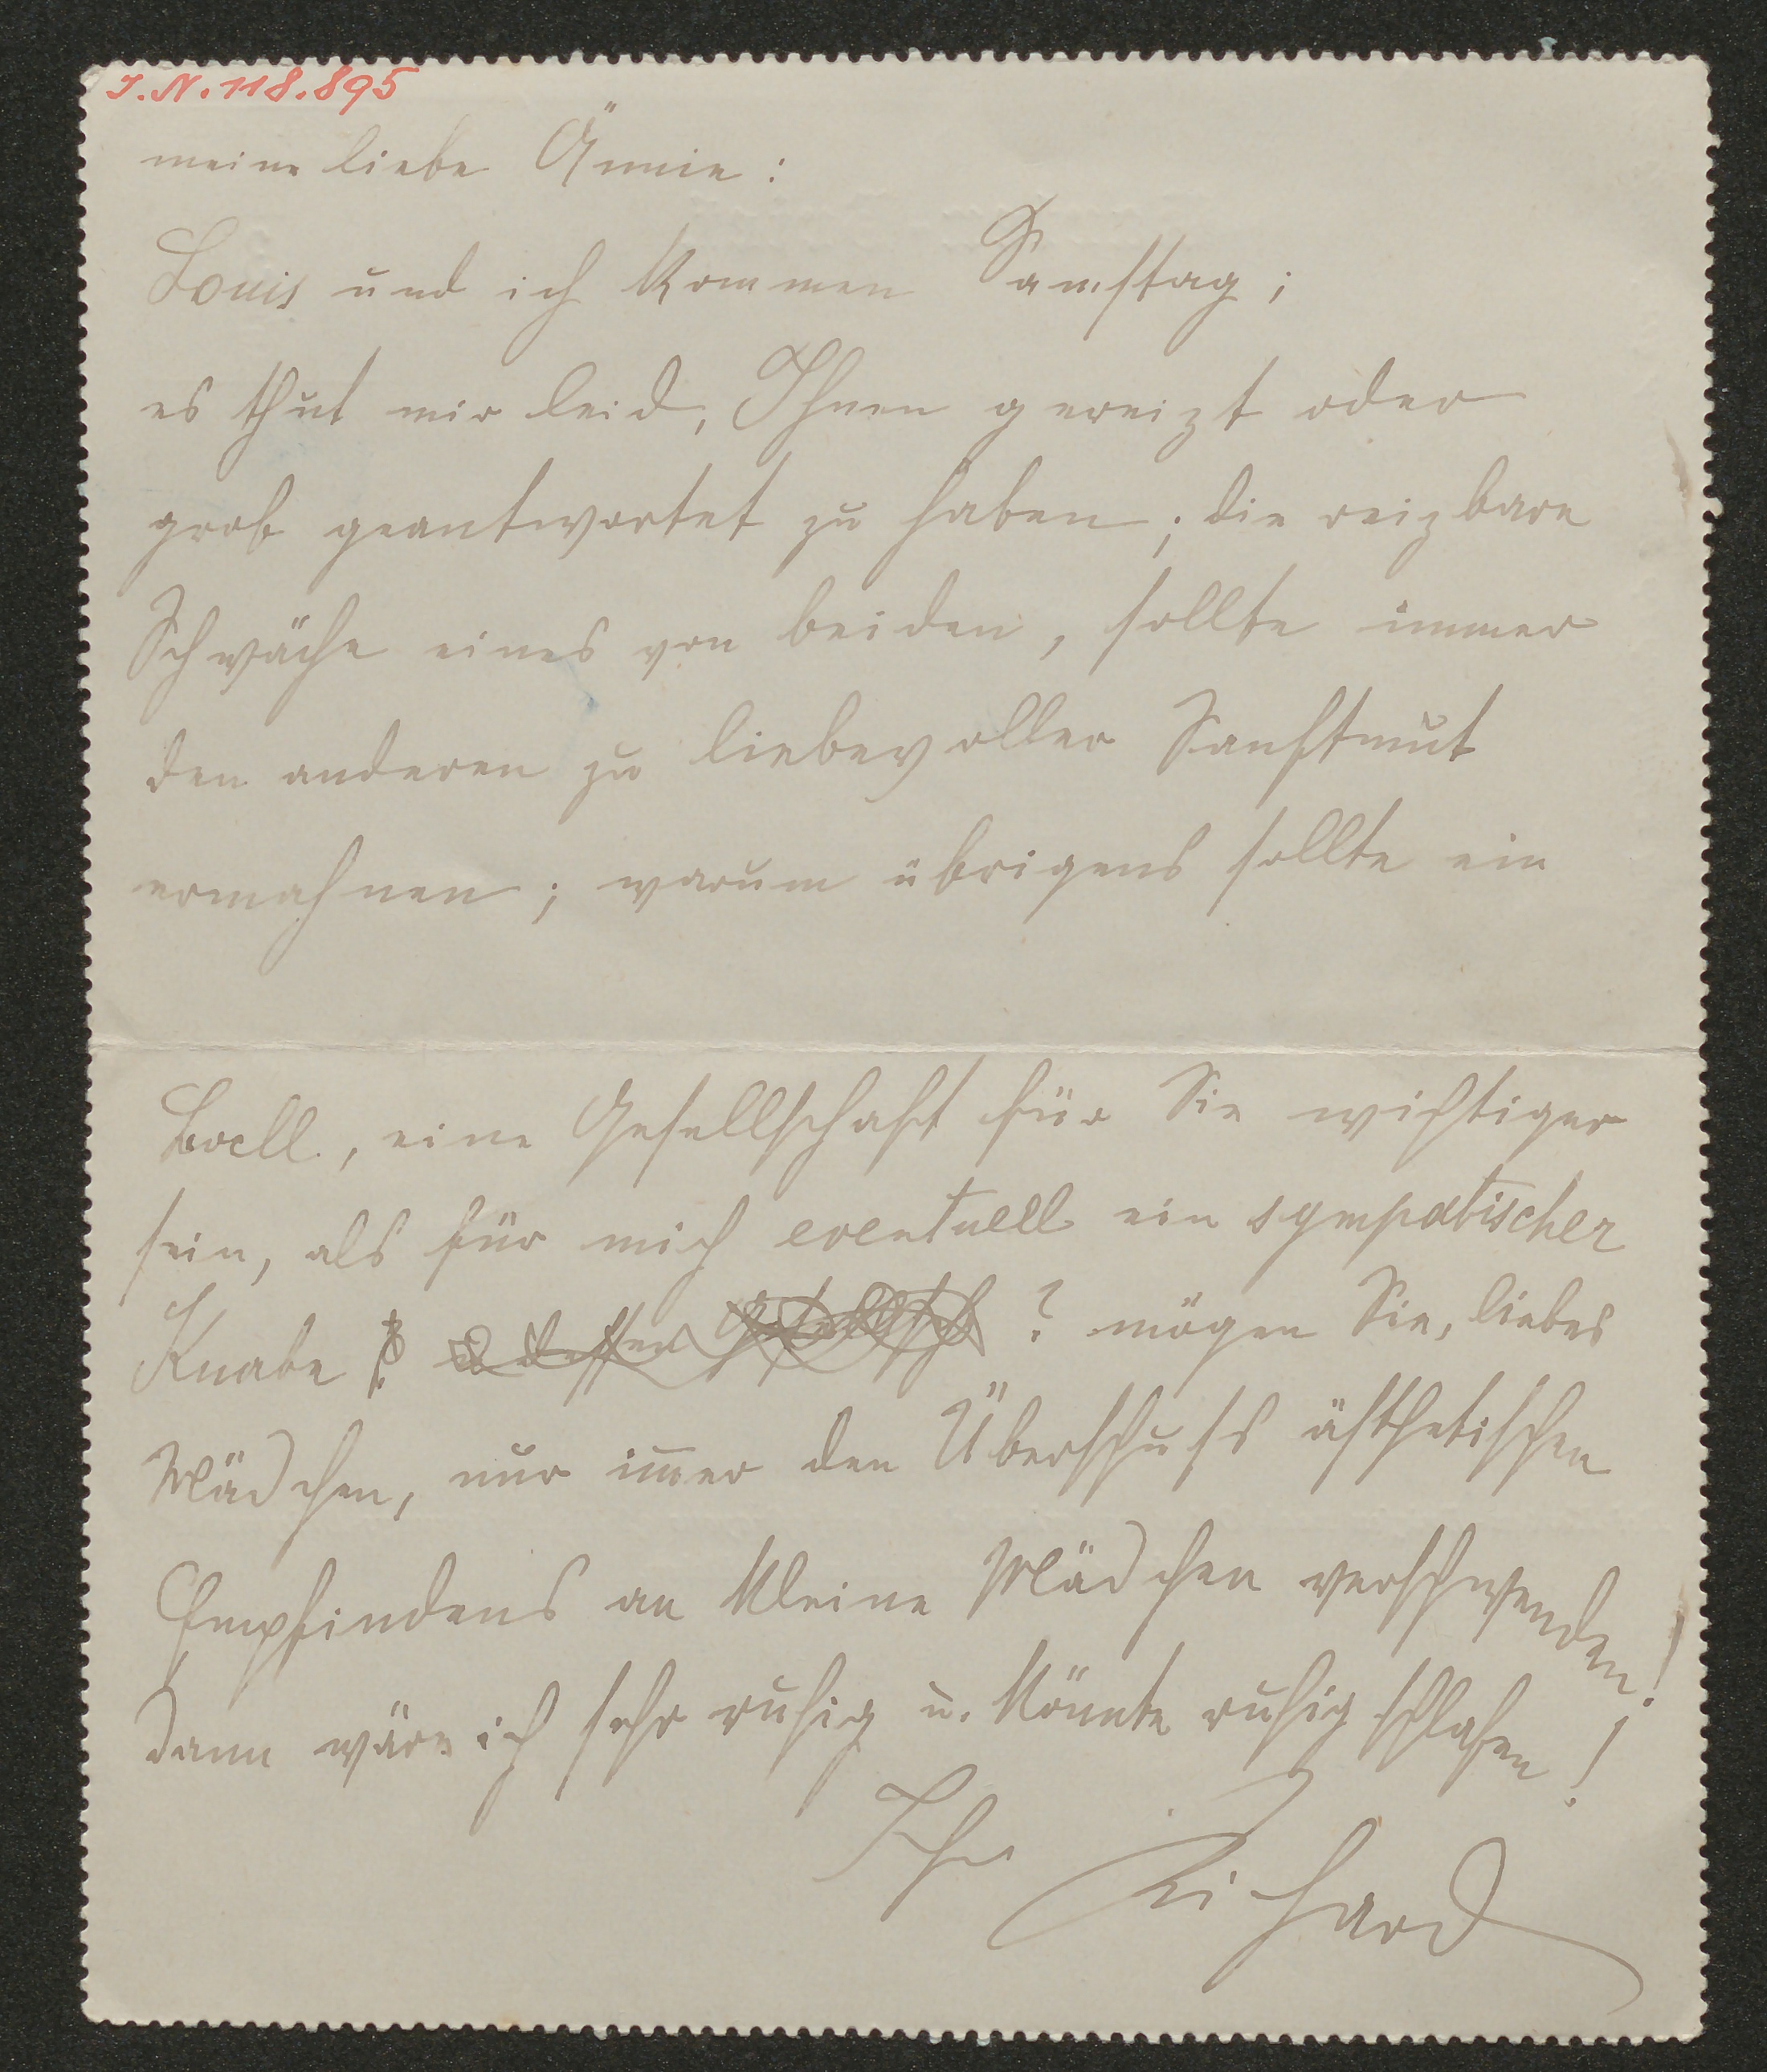 I.N. 118.895
meine liebe Ännie:
Louis und ich kommen Samstag;
es thut mir leid, Ihnen gereizt oder
grob geantwortet zu haben; die reizbare
Schwäche eines von beiden, sollte immer
den anderen zu liebevoller Sanftmut
ermahnen; warum übrigens sollte ein
eine Gesellschaft für Sie wichtiger
sein, als für mich eventuell ein sympatischer
Knabe ? mögen Sie, liebes
Mädchen, nur im̅er den Überschuss ästhetischen
Empfindens an kleine Mädchen verschwenden!
Dann wäre ich sehr ruhig u. könnte ruhig schlafen!
Ihr Richard